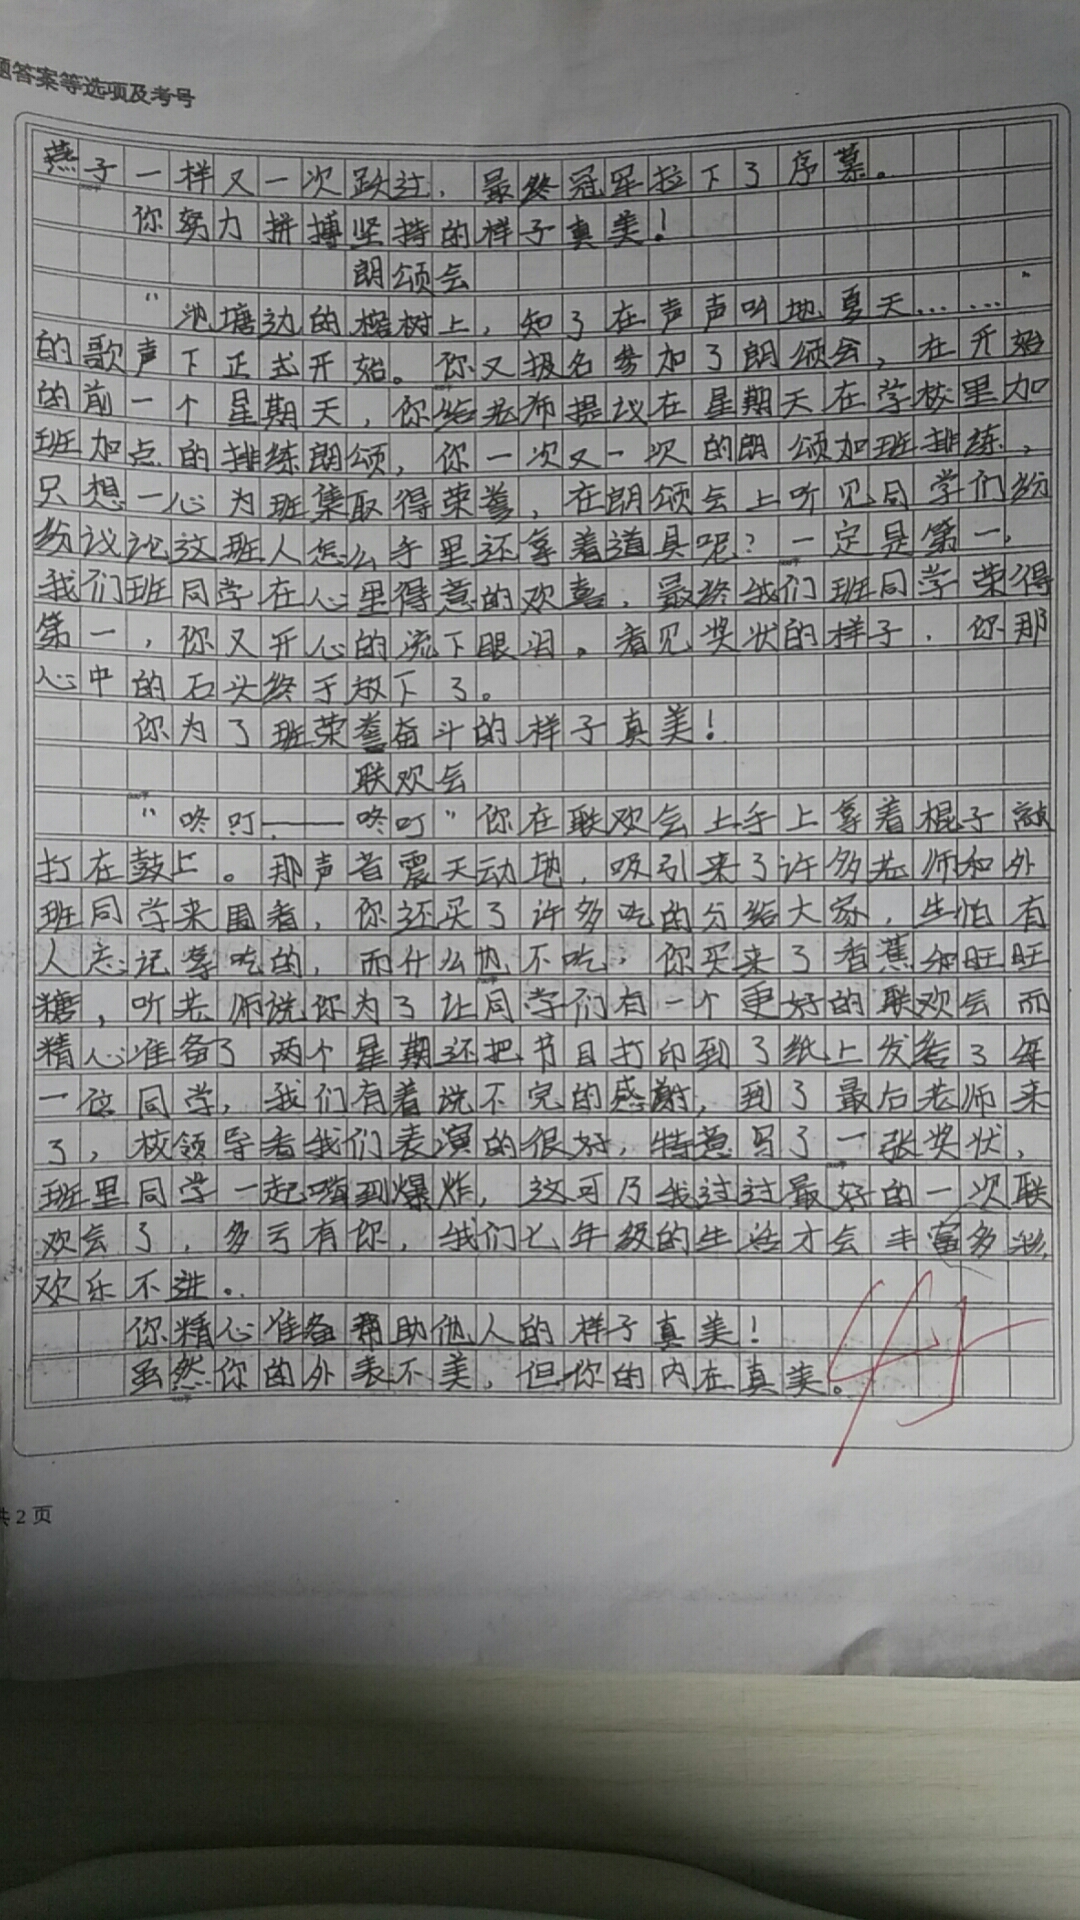 题答案等选项及考号
燕子一样又一次跃过，最终冠军拉下了序幕。
你努力拼搏坚持的样子真美！
朗颂会
“池塘边的榕树上，知了在声声叫地夏天……”
的歌声下正式开始。你又报名参加了朗颂会，在开始
的前一个星期天，你给老师提议在星期天在学校里加
班加点的排练朗颂，你一次又一次的朗颂加班排练，
只想一心为班集取得荣誉，在朗颂会上听见同学们纷
纷议论这班人怎么手里还拿着道具呢？一定是第一，
我们班同学在心里得意的欢喜，最终我们班同学荣得
第一，你又开心的流下眼泪。看见奖状的样子，你那
心中的石头终于放下了。
你为了班荣誉奋斗的样子真美！
联欢会
“咚叮——咚叮”你在联欢会上手上拿着棍子敲
打在鼓上。那声音震天动地，吸引来了许多老师和外
班同学来围看，你还买了许多吃的分给大家，生怕有
人忘记拿吃的，而什么也不吃，你买来了香蕉和旺旺
糖，听老师说你为了让同学们有一个更好的联欢会而
精心准备了两个星期还把节目打印到了纸上发给了每
一位同学，我们有着说不完的感谢，到了最后老师来
了，校领导看我们表演的很好，特意写了一张奖状，
班里同学一起嗨到爆炸，这可乃我过过最好的一次联
欢会了，多亏有你，我们七年级的生活才会丰富多彩，
欢乐不进。
你精心准备帮助他人的样子真美！
虽然你的外表不美，但你的内在真美。
共2页